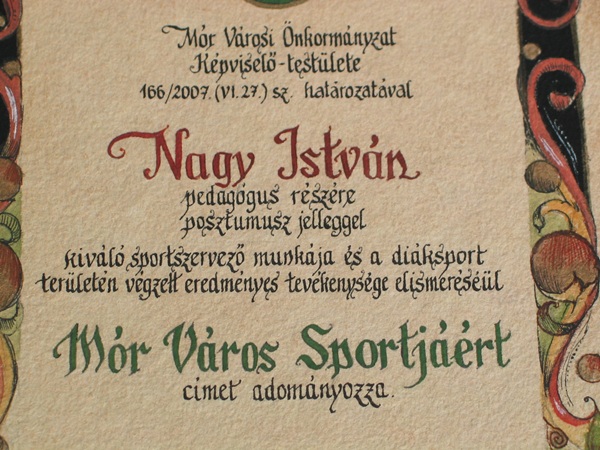 Mór Városi Önkormányzat
Képviselő-testülete
166/2007.(VI.27.) sz. határozatával
Nagy István
pedagógus részére
posztumusz jelleggel
kiváló sportszervező munkája és a diáksport
területén végzett eredményes tevékenysége elismeréséül
Mór Város Sportjáért
címet adományozza.